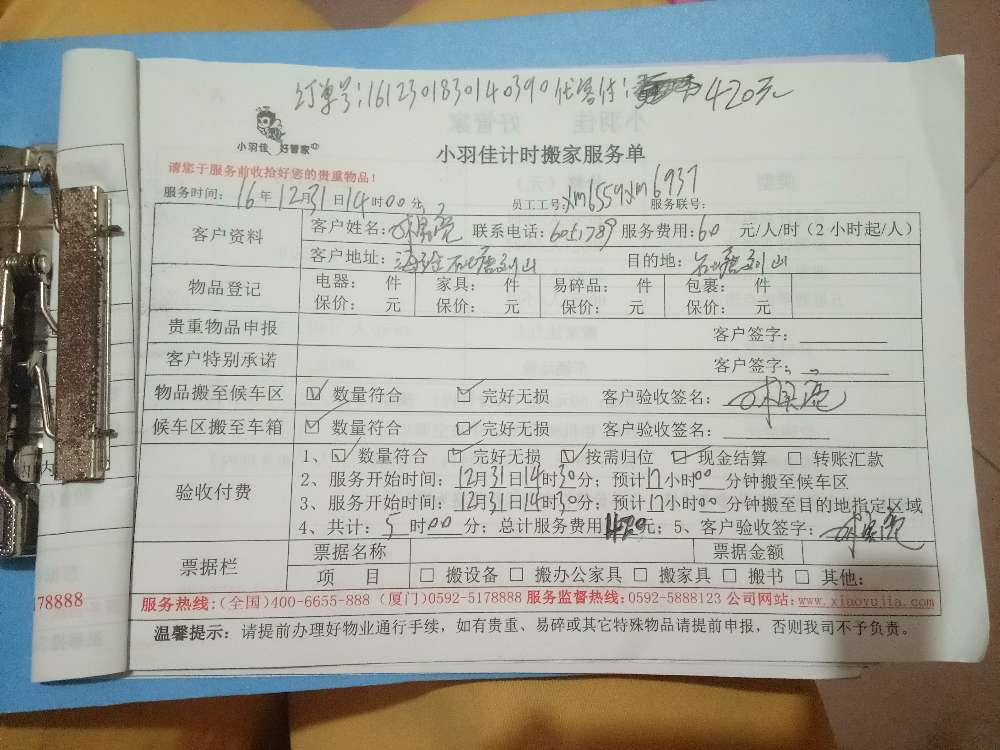 订单号:161230183014039０代客付: 420元
小羽佳 好管家
小羽佳计时搬家服务单
请您于服务前收拾好您的贵重物品!
服务时间: 16年12月31日14时00分 员工工号:xm6559xm6937 服务联号:
客户资料 客户姓名: 联系电话:6051789 服务费用:60 元/人/时(2小时起/人)
客户地址: 目的地:
物品登记 电器: 件 家具: 件 易碎品: 件 包裹: 件
保价: 元 保价: 元 保价: 元 保价: 元
贵重物品申报 客户签字:
客户特别承诺 客户签字:
物品搬至候车区 ☑ 数量符合 ☑ 完好无损 客户验收签名:
候车区搬至车箱 ☑ 数量符合 ☑ 完好无损 客户验收签名:
验收付费 1、☑ 数量符合 ☑ 完好无损 ☑ 按需归位 ☑ 现金结算 □ 转账汇款
2、服务开始时间:12月31日14时30分;预计17小时00分钟搬至候车区
3、服务开始时间:12月31日14时30分;预计17小时00分钟搬至目的地指定区域
4、共计: 5时00分;总计服务费用420元;5、客户验收签字:
票据栏 票据名称 票据金额
项 目 □ 搬设备 □ 搬办公家具 □ 搬家具 □ 搬书 □ 其他:
178888
服务热线:(全国)400-6655-888 (厦门)0592-5178888 服务监督热线:0592-5888123 公司网站:www.xiaoyujia.com
温馨提示:请提前办理好物业通行手续,如有贵重、易碎或其它特殊物品请提前申报,否则我司不予负责。